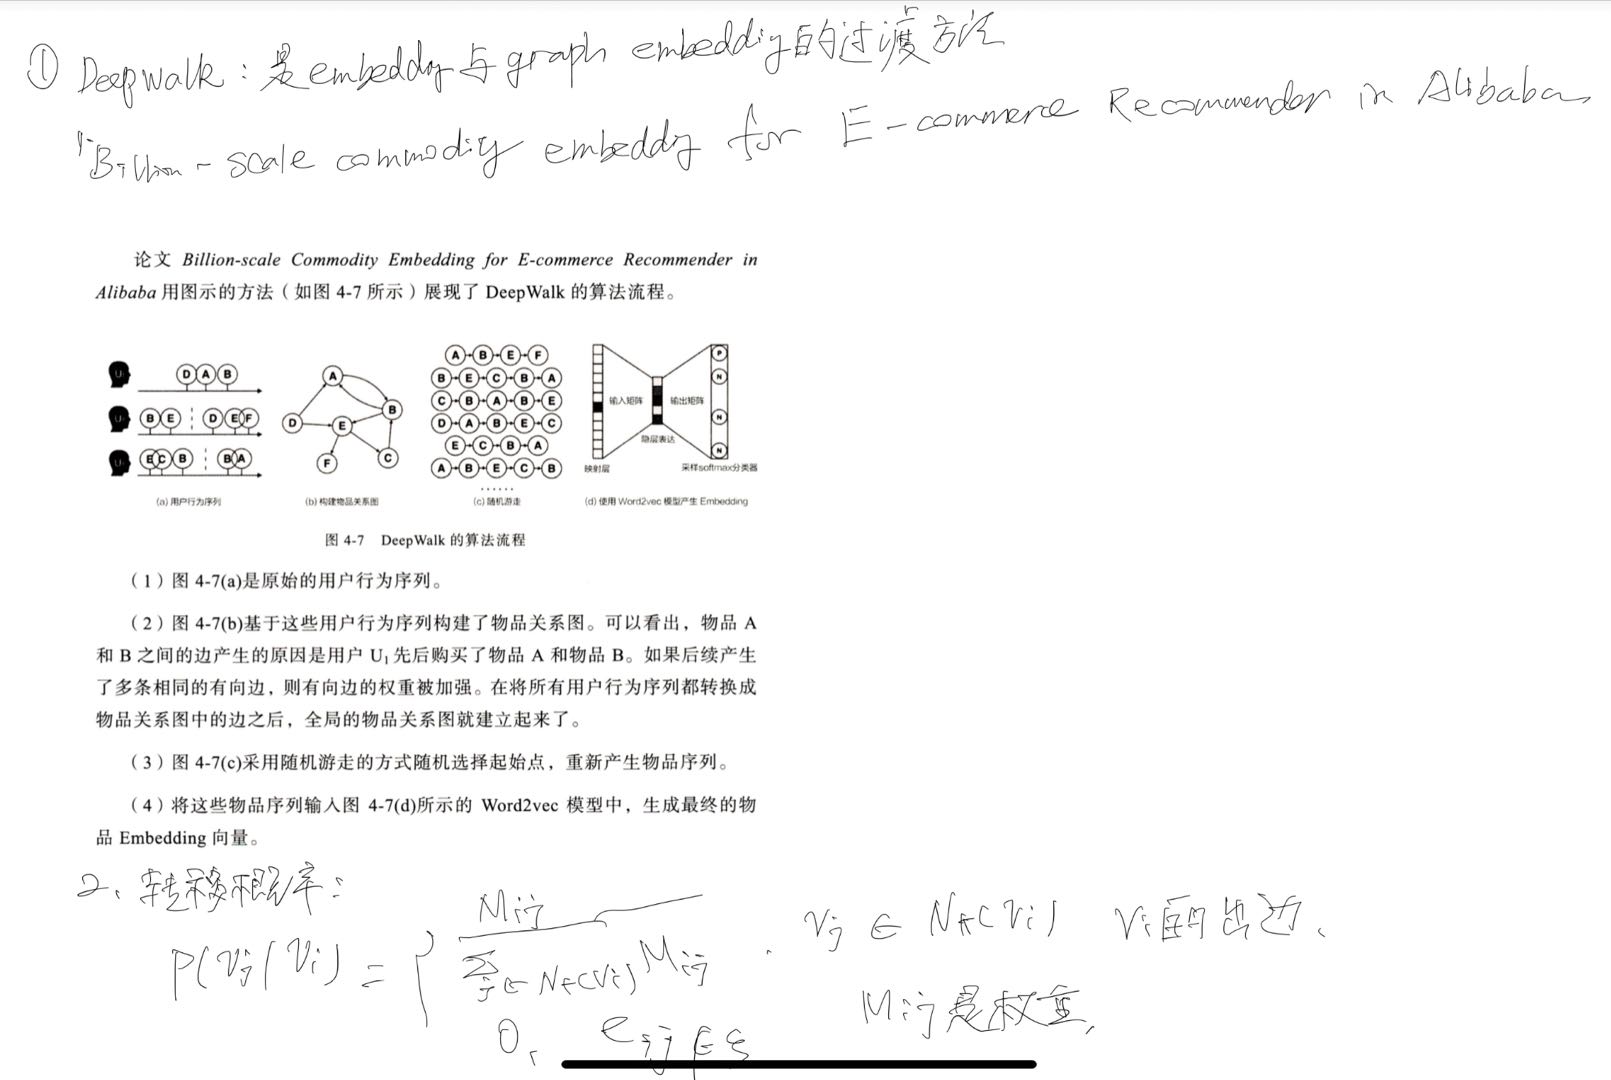 ① Deepwalk：是embedding与graph embedding的过渡方法
"Billion-scale commodity embedding for E-commerce Recommender in Alibaba
论文 Billion-scale Commodity Embedding for E-commerce Recommender in
Alibaba 用图示的方法（如图 4-7 所示）展现了 DeepWalk 的算法流程。
U₁ D A B
U₂ B E D E F
U₃ E C B B A
(a) 用户行为序列
A B D E F C
(b) 构建物品关系图
A B E F
B E C B A
C B A B E
D A B E C
E C B A
A B E C B
......
(c) 随机游走
输入矩阵 输出矩阵
隐层表达
映射层 采样softmax分类器
P N N N
(d) 使用 Word2vec 模型产生 Embedding
图 4-7 DeepWalk 的算法流程
（1）图 4-7(a)是原始的用户行为序列。
（2）图 4-7(b)基于这些用户行为序列构建了物品关系图。可以看出，物品 A
和 B 之间的边产生的原因是用户 U₁ 先后购买了物品 A 和物品 B。如果后续产生
了多条相同的有向边，则有向边的权重被加强。在将所有用户行为序列都转换成
物品关系图中的边之后，全局的物品关系图就建立起来了。
（3）图 4-7(c)采用随机游走的方式随机选择起始点，重新产生物品序列。
（4）将这些物品序列输入图 4-7(d)所示的 Word2vec 模型中，生成最终的物
品 Embedding 向量。
2、转移概率：
P(vj|vi) = { Mij / ∑j∈N+(vi) Mij , vj ∈ N+(vi) vi的出边、
Mij是权重、
0, eij ∉ ε